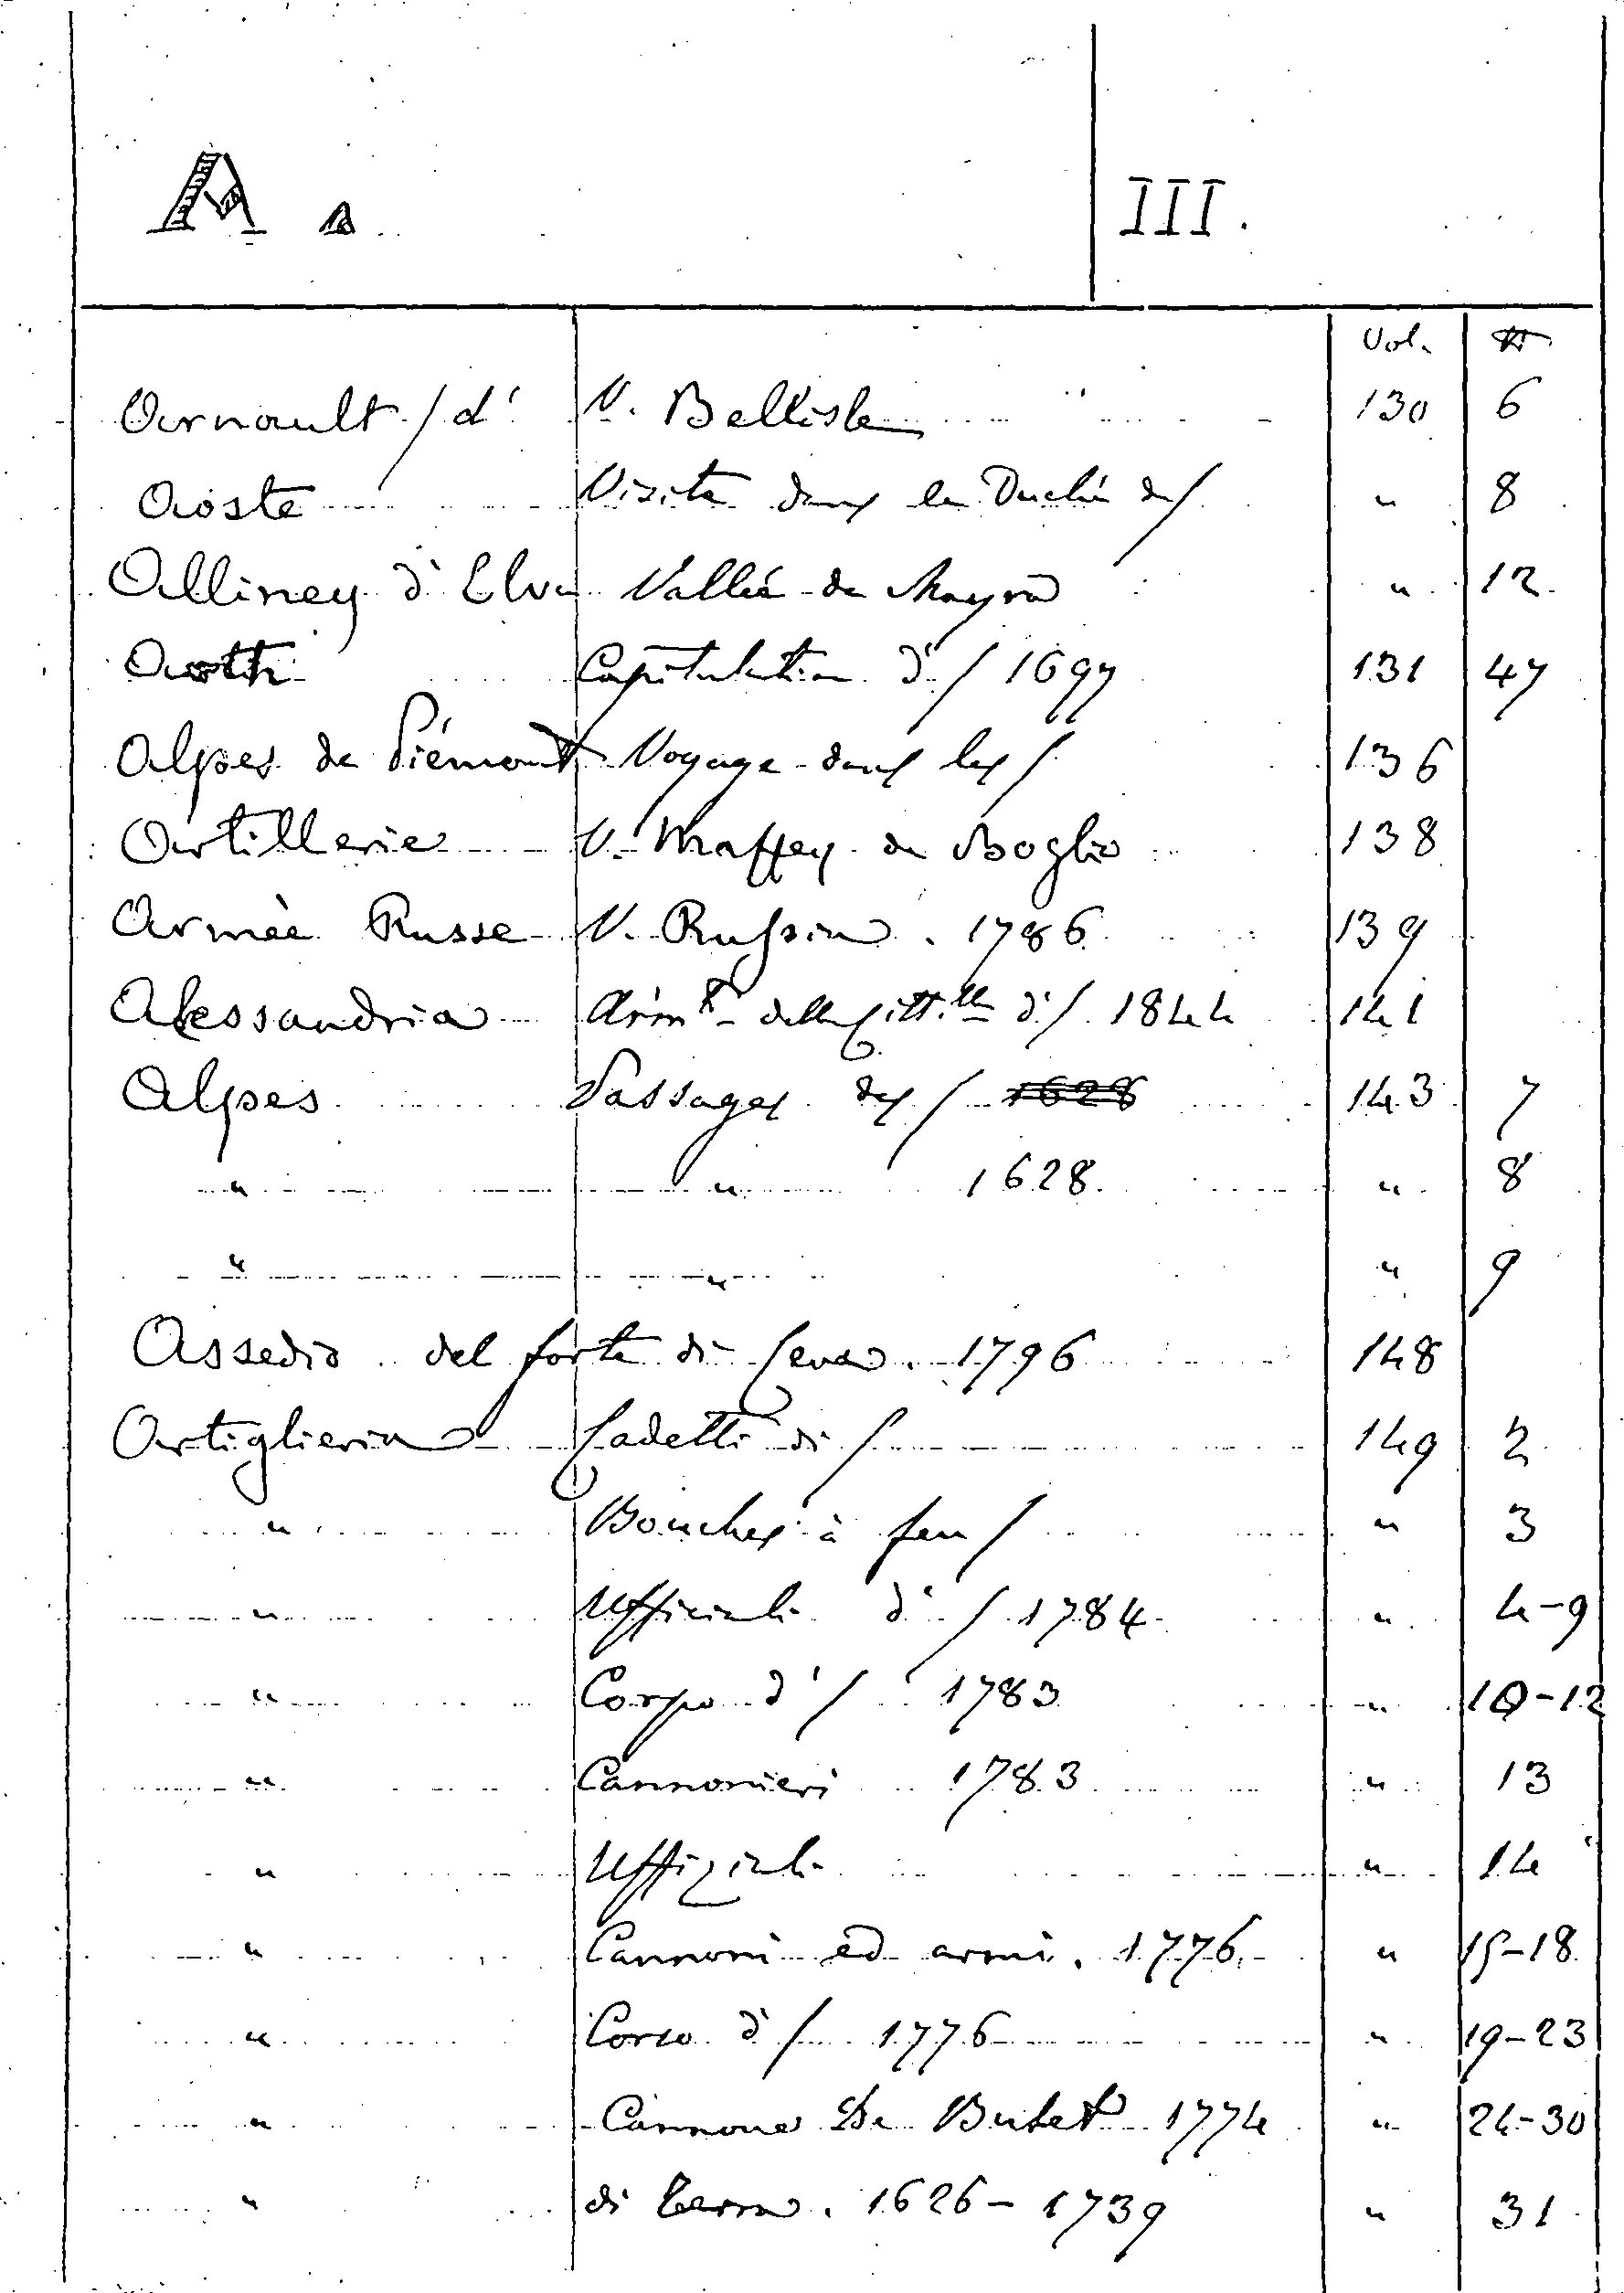 A. A
III.
Vol. №
Arnault / d' V. Bellisle 130 6
Aoste Visite dans le Duché d/ " 8
Alliney d'Elva Vallée de Mayra " 12
Aoste Capitulation d'/ 1697 131 47
Alpes de Piémont Voyage dans les / 136
Artillerie V. Maffey de Boglio 138
Armée Russe V. Russia. 1786 139
Alessandria Arm.to della Citt.lla di / 1844 141
Alpes Passages des / 1628 143 7
" " 1628 " 8
" " " 9
Assedio del forte di Ceva. 1796 148
Artiglieria Cadetti di / 149 2
" Bouches à feu / " 3
" Ufficiali d'/ 1784 " 4-9
" Corpo d'/ 1783 " 10-12
" Cannonieri 1783 " 13
" Uffiziali " 14
" Cannoni ed armi. 1776 " 15-18
" Corso d'/ 1776 " 19-23
" Cannone De Butet 1774 " 24-30
" di terra. 1626-1739 " 31